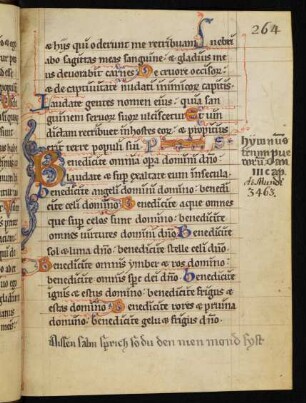 264
& hiis qui oderunt me retribuam. Inebri
abo sagittas meas sanguine: & gladius me
us devorabit carnes. De cruore occisor̃:
& de captivitate nudati inimicor̃ capitis.
Laudate gentes nomen eius: quia san
guinem servor̃ suor̃ ulciscetur. Et vin
dictam retribuet in hostes eor̃: & propitius
erit terre populi sui.
Benedicite omnia opa domini dño:
laudate & sup exaltate eum in secula.
Benedicite angeli domini domino: benedi
cite celi domino. Benedicite aque omnes
que sup celos sunt domino: benedicite
omnes virtutes domini dño. Benedicite
sol & luna dño: benedicite stelle celi dño.
Benedicite omnis ymber & ros domino:
benedicite omnis sp̃c dei dño. Benedicite
ignis & estus domino: benedicite frigus &
estas domino. Benedicite rores & pruina
domino: benedicite gelu & frigus dño.
Dissen salm sprich so du den
hÿmnus
trium pue
rorũ. Dan
III cap.
Aõ. Mundi
3463.